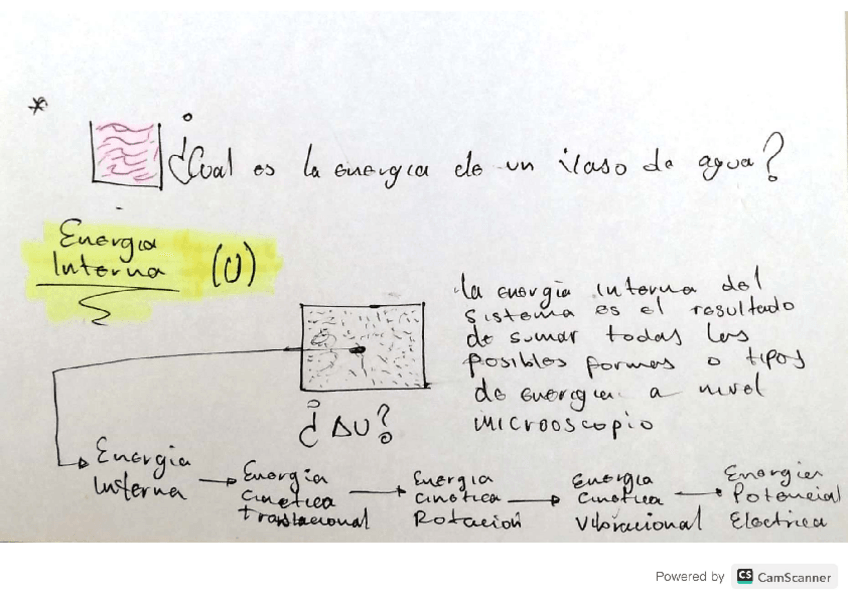 *
¿Cual es la energia de un vaso de agua?
Energia
Interna (U)
la energia interna del
sistema es el resultado
de sumar todas las
posibles formas o tipos
de energia a nivel
microoscopio
¿ΔU?
Energia
Interna → Energia
cinetica
translacional → Energia
cinetica
Rotación → Energia
cinetica
Vibracional → Energia
Potencial
Electrica
Powered by CS CamScanner